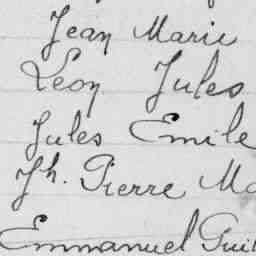 Jean Marie
Léon Jules
Jules Emile
Jh. Pierre Ma
Emmanuel Guil